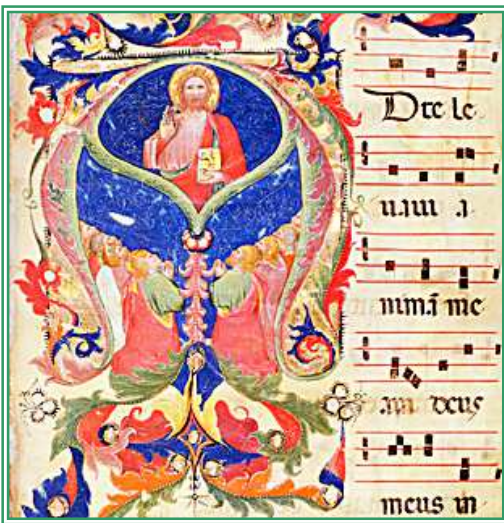 A Dte le
uaui a
nimā me
am deus
meus in